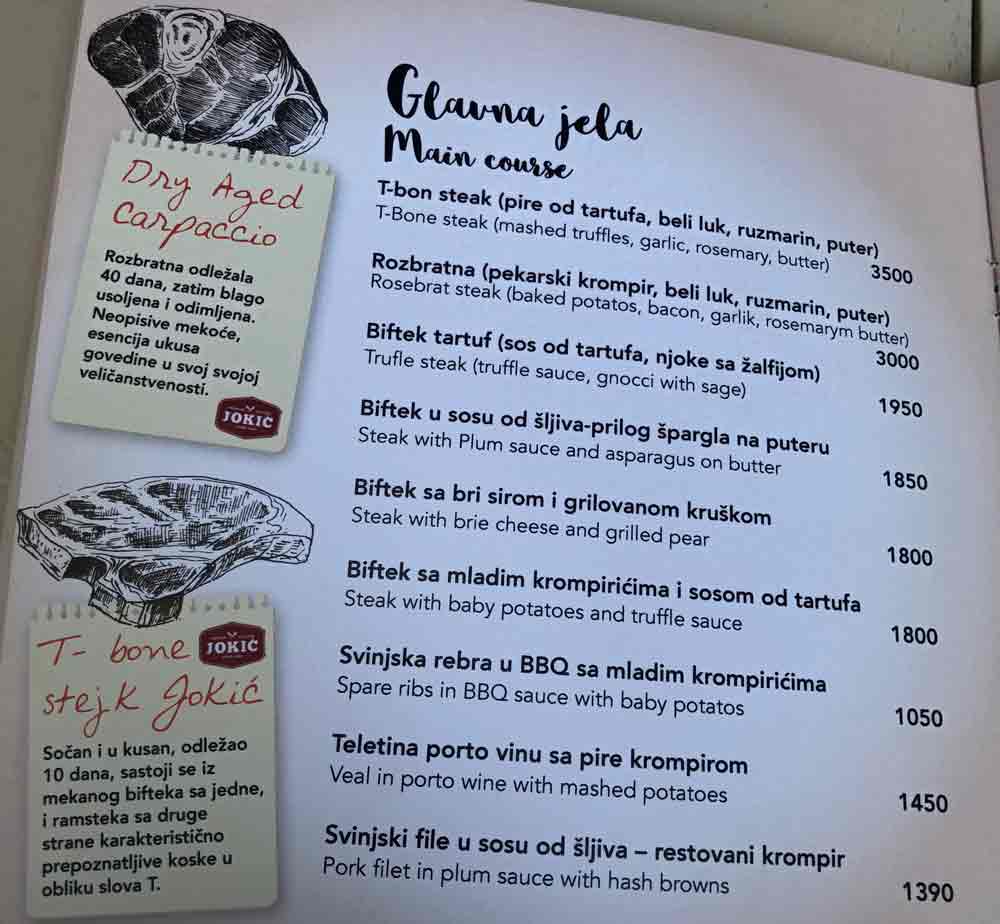 Glavna jela
Main course
T-bon steak (pire od tartufa, beli luk, ruzmarin, puter)
T-Bone steak (mashed truffles, garlic, rosemary, butter)
3500
Rozbratna (pekarski krompir, beli luk, ruzmarin, puter)
Rosebrat steak (baked potatos, bacon, garlik, rosemarym butter)
3000
Biftek tartuf (sos od tartufa, njoke sa žalfijom)
Trufle steak (truffle sauce, gnocci with sage)
1950
Biftek u sosu od šljiva-prilog špargla na puteru
Steak with Plum sauce and asparagus on butter
1850
Biftek sa bri sirom i grilovanom kruškom
Steak with brie cheese and grilled pear
1800
Biftek sa mladim krompirićima i sosom od tartufa
Steak with baby potatoes and truffle sauce
1800
Svinjska rebra u BBQ sa mladim krompirićima
Spare ribs in BBQ sauce with baby potatos
1050
Teletina porto vinu sa pire krompirom
Veal in porto wine with mashed potatoes
1450
Svinjski file u sosu od šljiva – restovani krompir
Pork filet in plum sauce with hash browns
1390
Dry Aged
Carpaccio
Rozbratna odležala
40 dana, zatim blago
usoljena i odimljena.
Neopisive mekoće,
esencija ukusa
govedine u svoj svojoj
veličanstvenosti.
JOKIĆ
T- bone
JOKIĆ
stejk Jokić
Sočan i u kusan, odležao
10 dana, sastoji se iz
mekanog bifteka sa jedne,
i ramsteka sa druge
strane karakteristično
prepoznatljive koske u
obliku slova T.